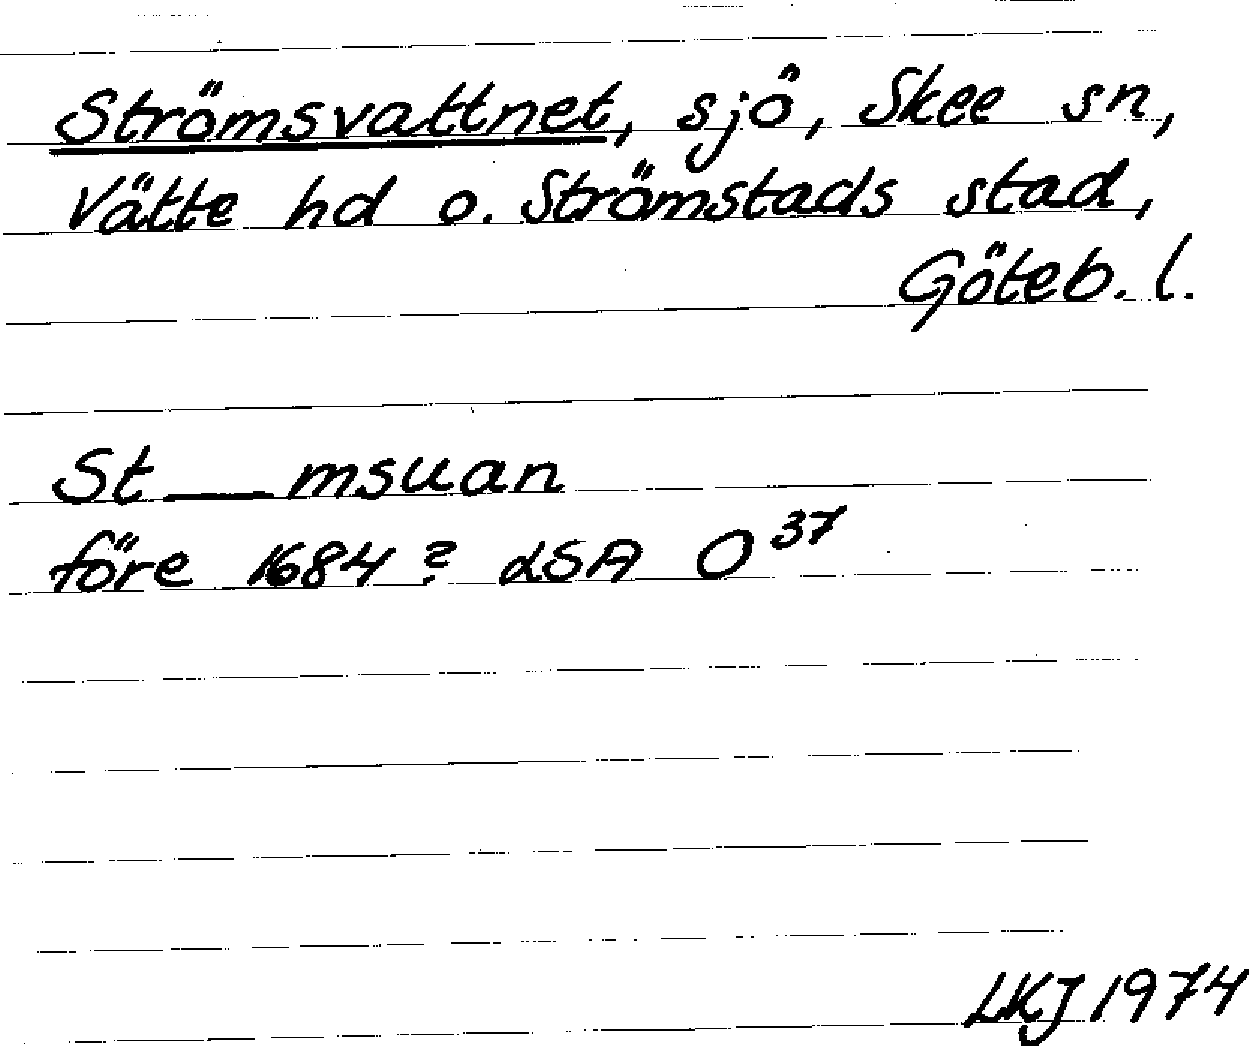 Strömsvattnet, sjö, Skee sn,
Vätte hd o. Strömstads stad,
Göteb. l.
St___msuan
före 1684? LSA O³⁷
LKJ 1974